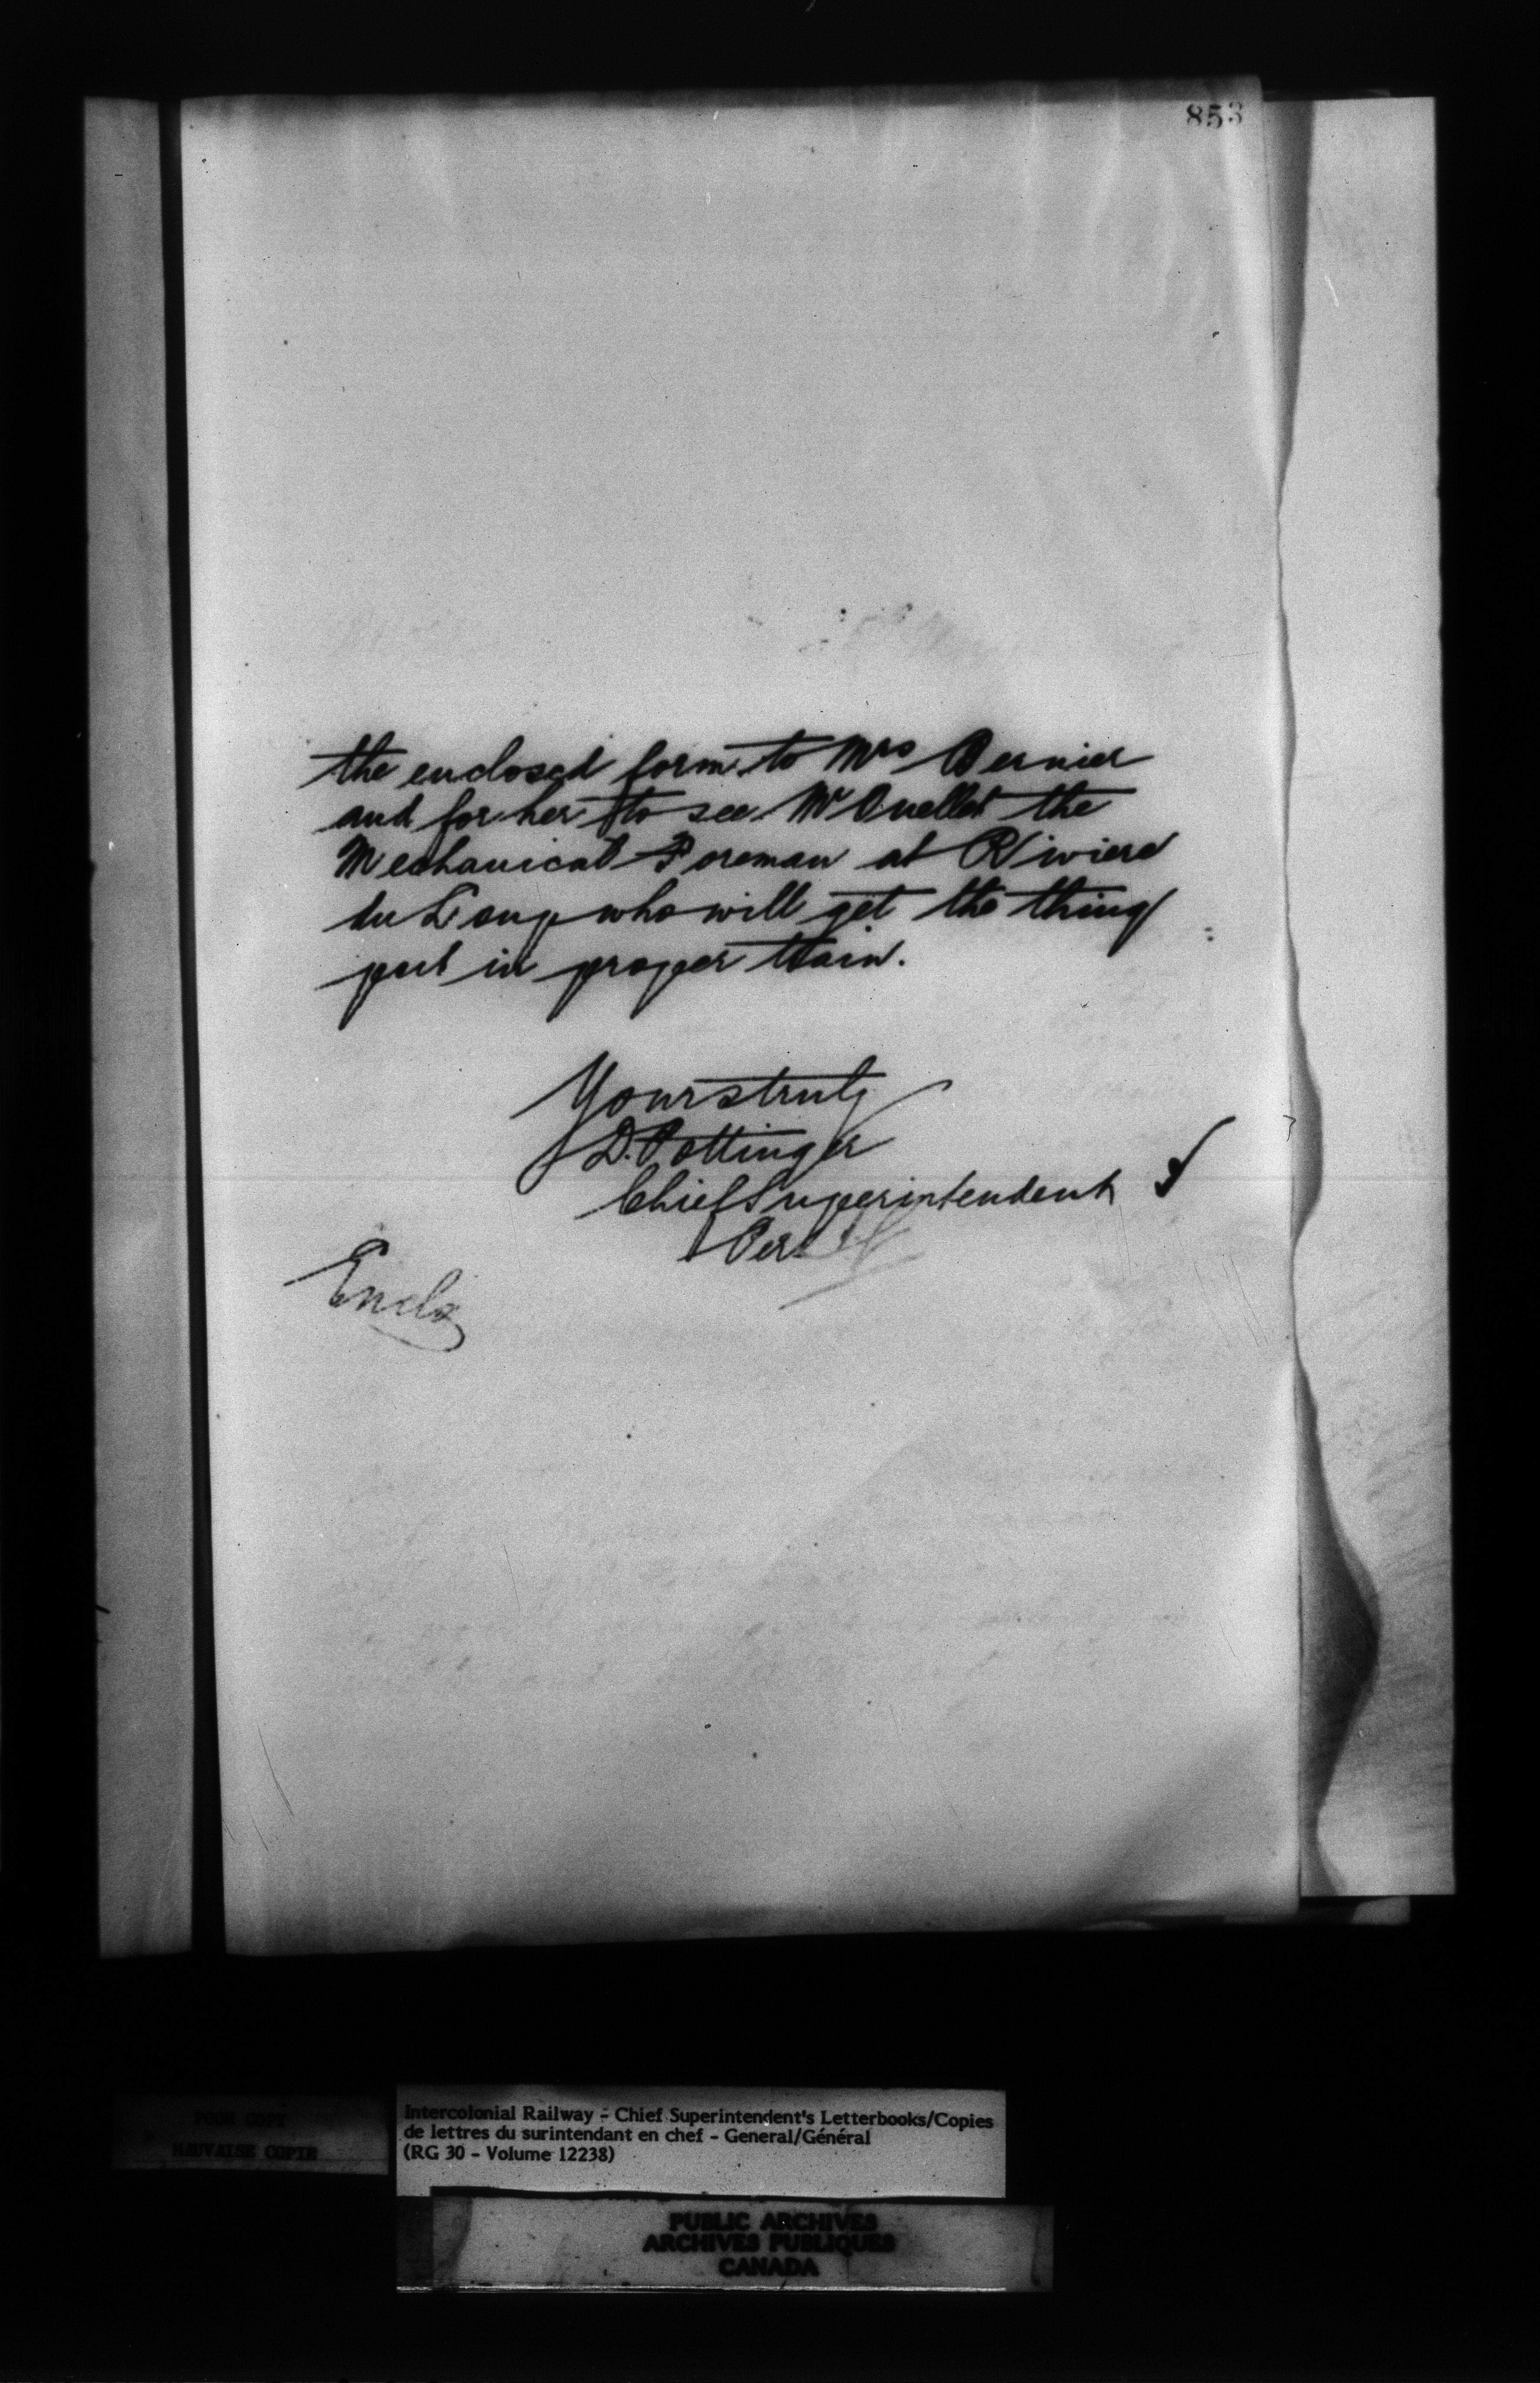 853
the enclosed form to Mrs Bernier
and for her to see Mr Ouellet the
Mechanical Foreman at Riviere
du Loup who will get the thing
put in proper train.
Yours truly
D. Pottinger
Chief Superintendent
Per
Enclo
POOR COPY
MAUVAISE COPIE
Intercolonial Railway - Chief Superintendent's Letterbooks/Copies
de lettres du surintendant en chef - General/Général
(RG 30 - Volume 12238)
PUBLIC ARCHIVES
ARCHIVES PUBLIQUES
CANADA